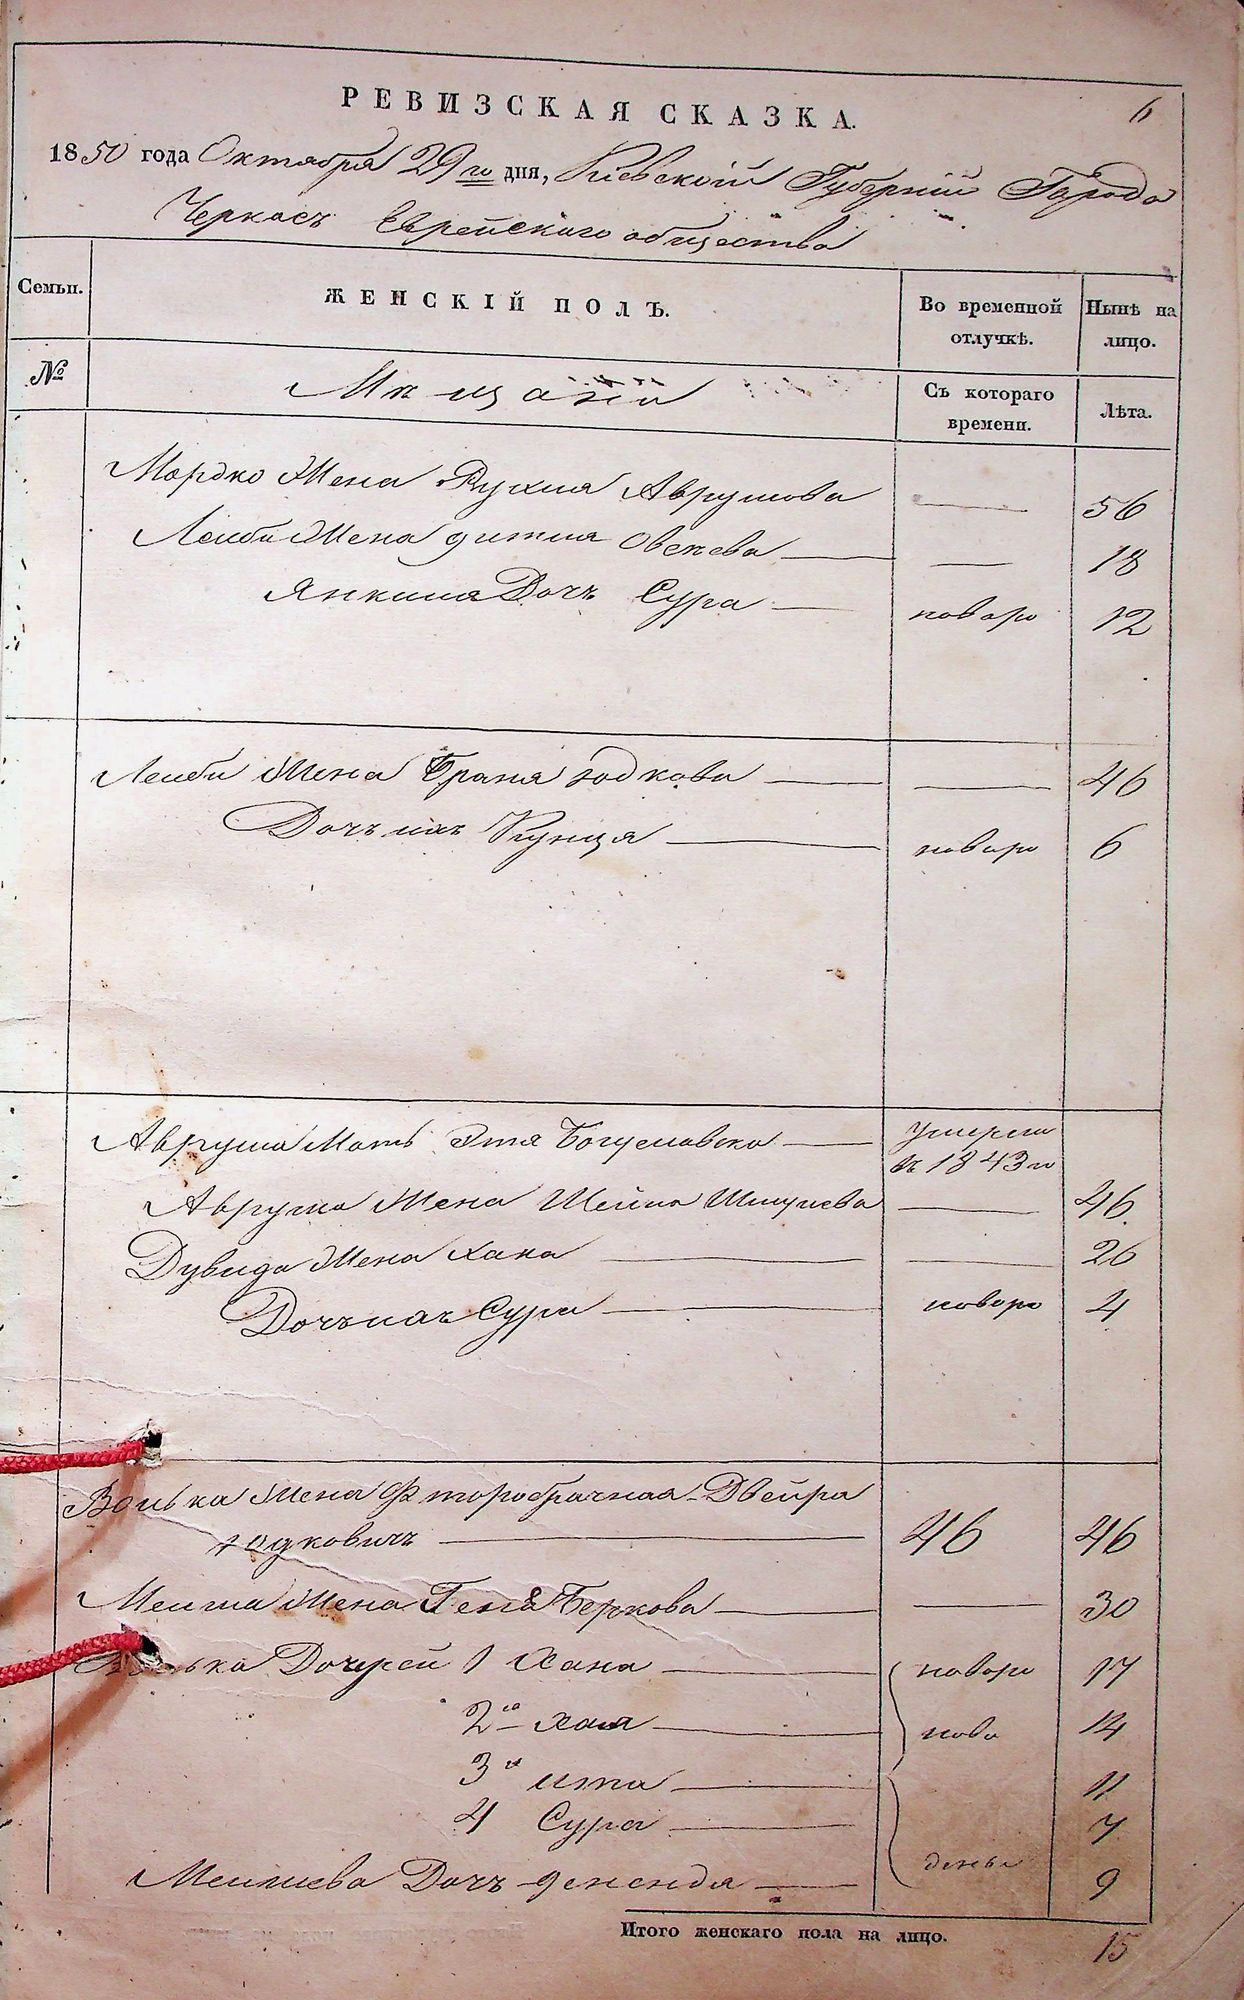 6
РЕВИЗСКАЯ СКАЗКА.
1850 года Октября 29го дня, Киевской Губернiи Города
Черкасъ Еврейского общества
Семьи. ЖЕНСКIЙ ПОЛЪ. Во временной отлучкѣ. Нынѣ на лицо.
№ Мѣщане Съ котораго времени. Лѣта.
Мордко Жена Рухля Аврумова — 56
Лейби Жена Овсеева — 18
Янкиля Дочь Сура — новоро 12
Лейби Жена Браня Юдкова — 46
Дочь ихъ Кунця — новоро 6
Аврума Мать Этя Богуславска — умерла
въ 1843го
Аврума Жена Шейна — 46.
Дувида Жена Хана — 26
Дочь ихъ Сура — новоро 4
Волька Жена фторобрачная Двейра
Юдковичъ — 46 46
Жена Геня Беркова — 30
Дочерей 1 Хана — новоро 17
2я Хая — ново 14
3я ита — 11
4 Сура — 7
Дочь — 9
Итого женскаго пола на лицо. 15